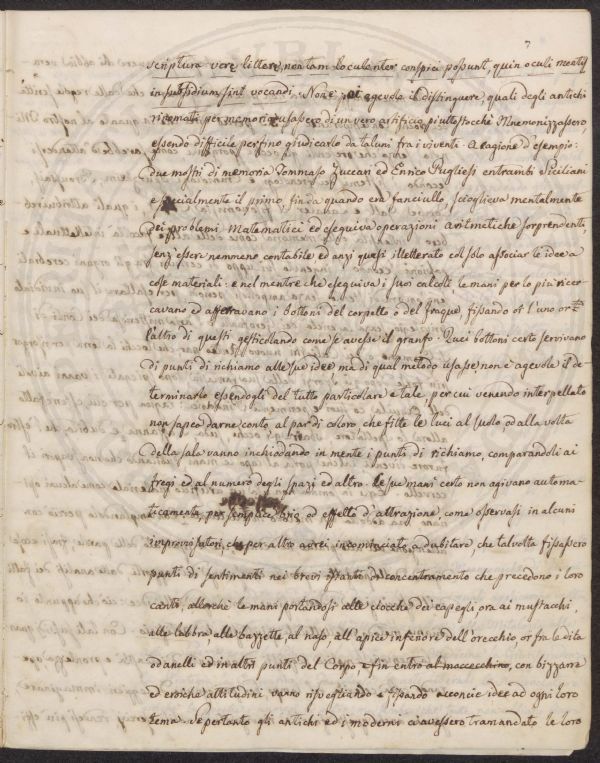 7
scriptura vere litterę, non tam loculenter conspici possunt, quin oculi mentis
in subsidium sint vocandi. Non è poi agevole il distinguere, quali degli antichi
rinomati per memoria usassero di un vero artificio, piuttostocchè Mnemonizzassero,
essendo difficile perfino giudicarlo da taluni fra i viventi. A cagione d'esempio:
due mostri di memoria Tommaso Zuccari ed Enrico Pugliesi entrambi Siciliani
e specialmente il primo, fin da quando era fanciullo, scioglieva mentalmente
dei problemi Matematici ed eseguiva operazioni aritmetiche sorprendenti,
senz'essere nemmeno contabile ed anzi quasi illetterato col solo associar le idee a
cose materiali: e nel mentre che eseguiva i suoi calcoli le mani per lo più ricer-
cavano ed afferravano i bottoni del corpetto o del fraque, fissando or l'uno or
l'altro di questi gesticolando come se avesse il granfo. Quei bottoni certo servivano
di punti di richiamo alle sue idee, ma di qual metodo usasse non è agevole il de-
terminarlo essendogli del tutto particolare e tale, per cui venendo interpellato
non sapea darne conto, al par di coloro, che fitte le luci al suolo od alla volta
della sala vanno inchiodando in mente i punti di richiamo, comparandoli ai
fregi ed al numero degli spazi ed altro. Le sue mani certo non agivano automa-
ticamente per semplice brio od effetto d'attrazione, come osservasi in alcuni
improvisatori, che per altro avrei incominciato a dubitare, che talvolta fissassero
punti di sentimenti nei brevi istanti di concentramento che precedono i loro
canti, allorchè le mani portandosi alle ciocche dei capegli ora ai mustacchi,
alle labbra, alle bazzette, al naso, all'apice inferiore dell'orecchio, or fra le dita
od anelli ed in altri punti del Corpo e fin entro al moccecchino, con bizzarre
ed eroiche attitudini vanno risvegliando e fissando acconcie idee ad ogni loro
tema. Se pertanto gli antichi ed i moderni ci avessero tramandato le loro